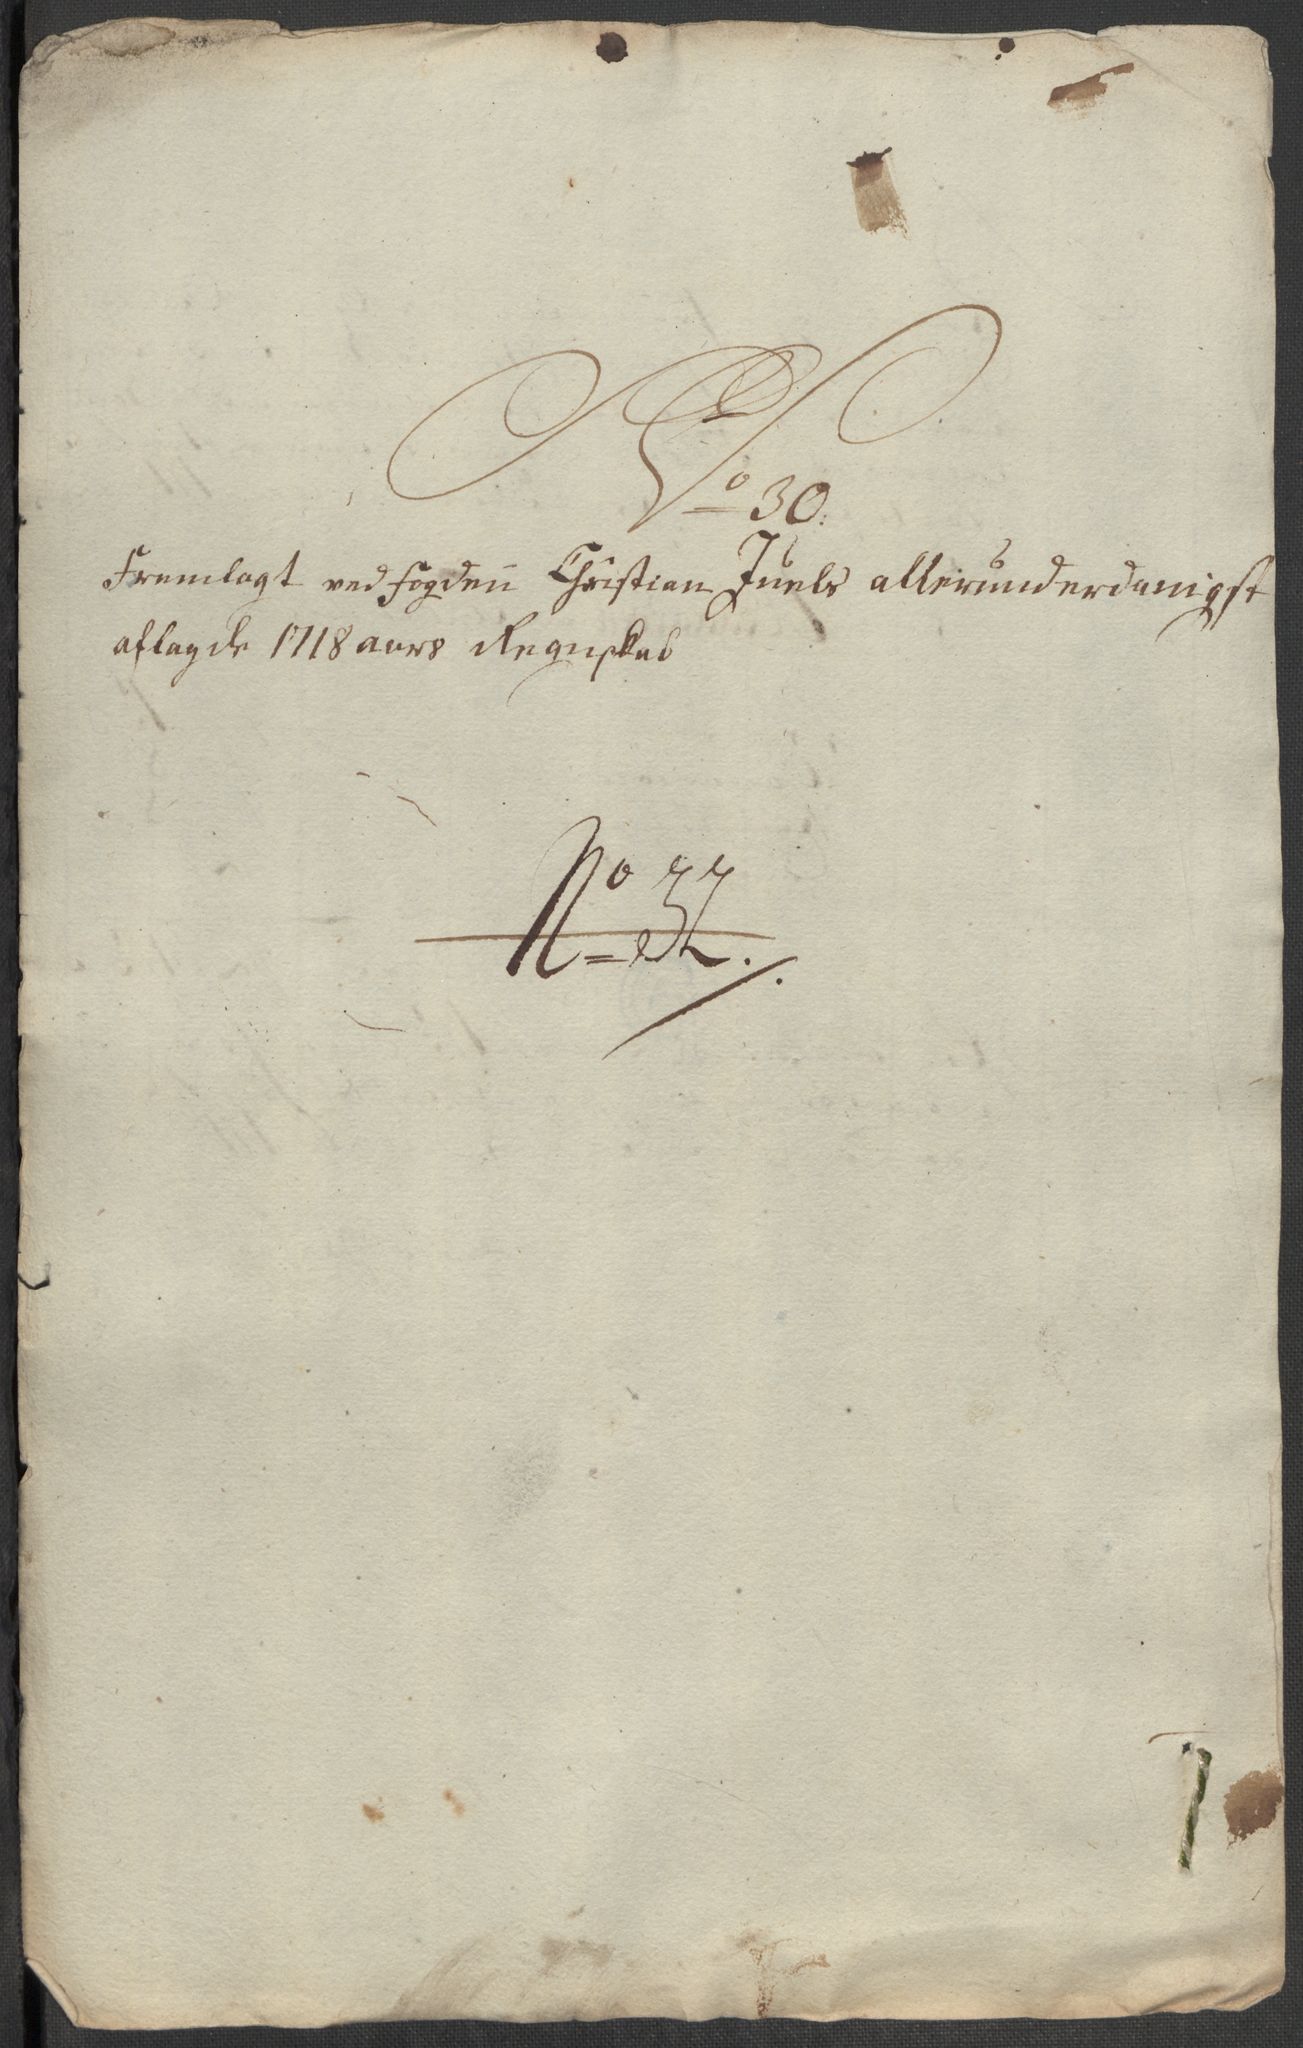 No 30.
Fremlagt ved fogden Christian Juels allerunderdanigst
aflagde 1718 aars Regnskab
No 32.